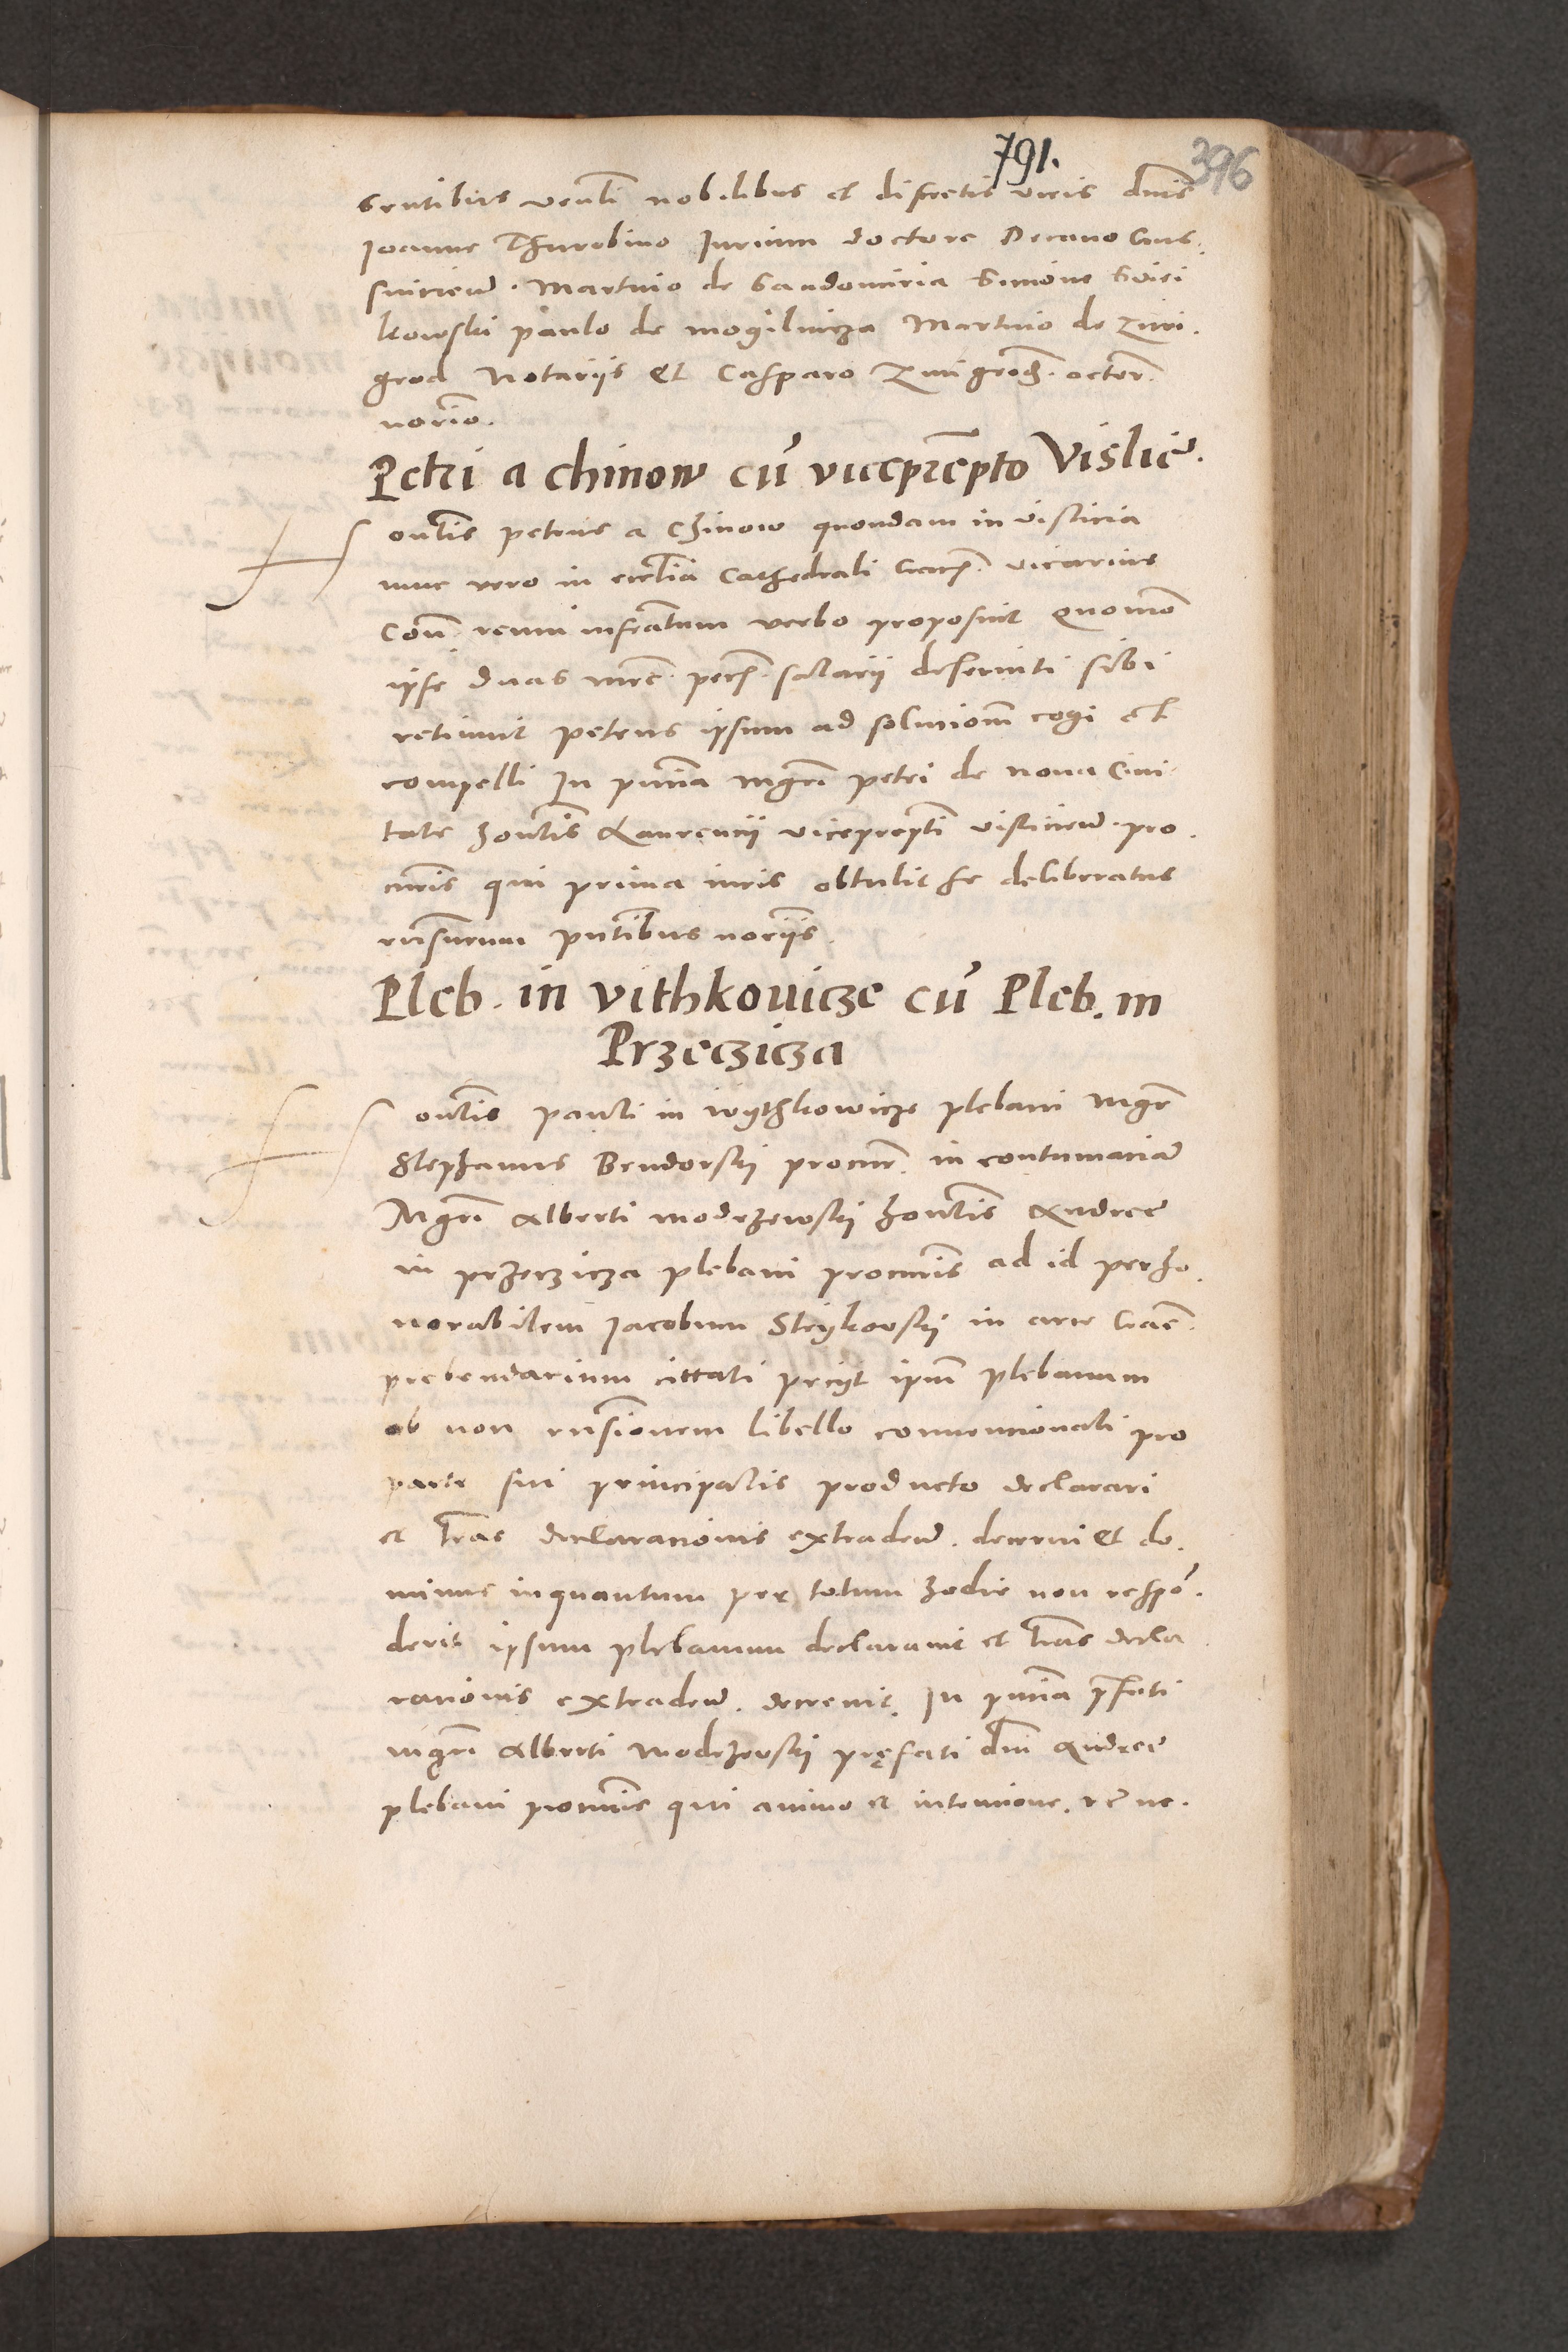 791.
396
sentibus venli nobilibus et discretis viris dnis
Joanne Thurobino Jurium doctore Decano Gnes.
Martino de Sandomiria Simone
kowski paulo de mogilnicza Martino de Zmi.
grod Notariis et Casparo Zmigrod.
norio.
Petri a chinow cu viceprepto Vislic.
Honlis petrus a Chinow quondam in vislicia
nunc vero in ecclia Cathedrali Crac. vicarius
Con. reum infrantum verbo proposuit Quomo
ipse duas mrc. pecs. salarii deserviti sibi
retinuit petens ipsum ad solucionem cogi et
compelli In pncia mgri petri de nova Civi
tate honlis Laurencii viceprepti vislicien. pro.
curis qui prima iuris obtulit se deliberatus
rnsurum pntibus noriis.
Pleb. in vithkovicze cu Pleb. in
Przeczicza
Honlis pauli in wythkowicze plebani mgr
Stephanus Bendorskÿ procur. in contumaciam
Mgri Alberti modrzewskÿ honlis Andree
in przeczicza plebani procuris ad id per ho.
norabilem Jacobum Strÿkovskÿ in arce Crac.
prebendarium cittati peciit ipm plebanum
ob non rnsionem libello convencionali pro
parte sui principalis producto declarari
et lras declaracionis extraden. decerni Et do.
minus inquantum per totum hodie non respo.
derit ipsum plebanum declaravit et lras decla
racionis extraden. decrevit. In pncia prefati
mgri Alberti Modrzevskÿ pręfati dni Andree
plebani procuris qui animo et intencione. re ne.